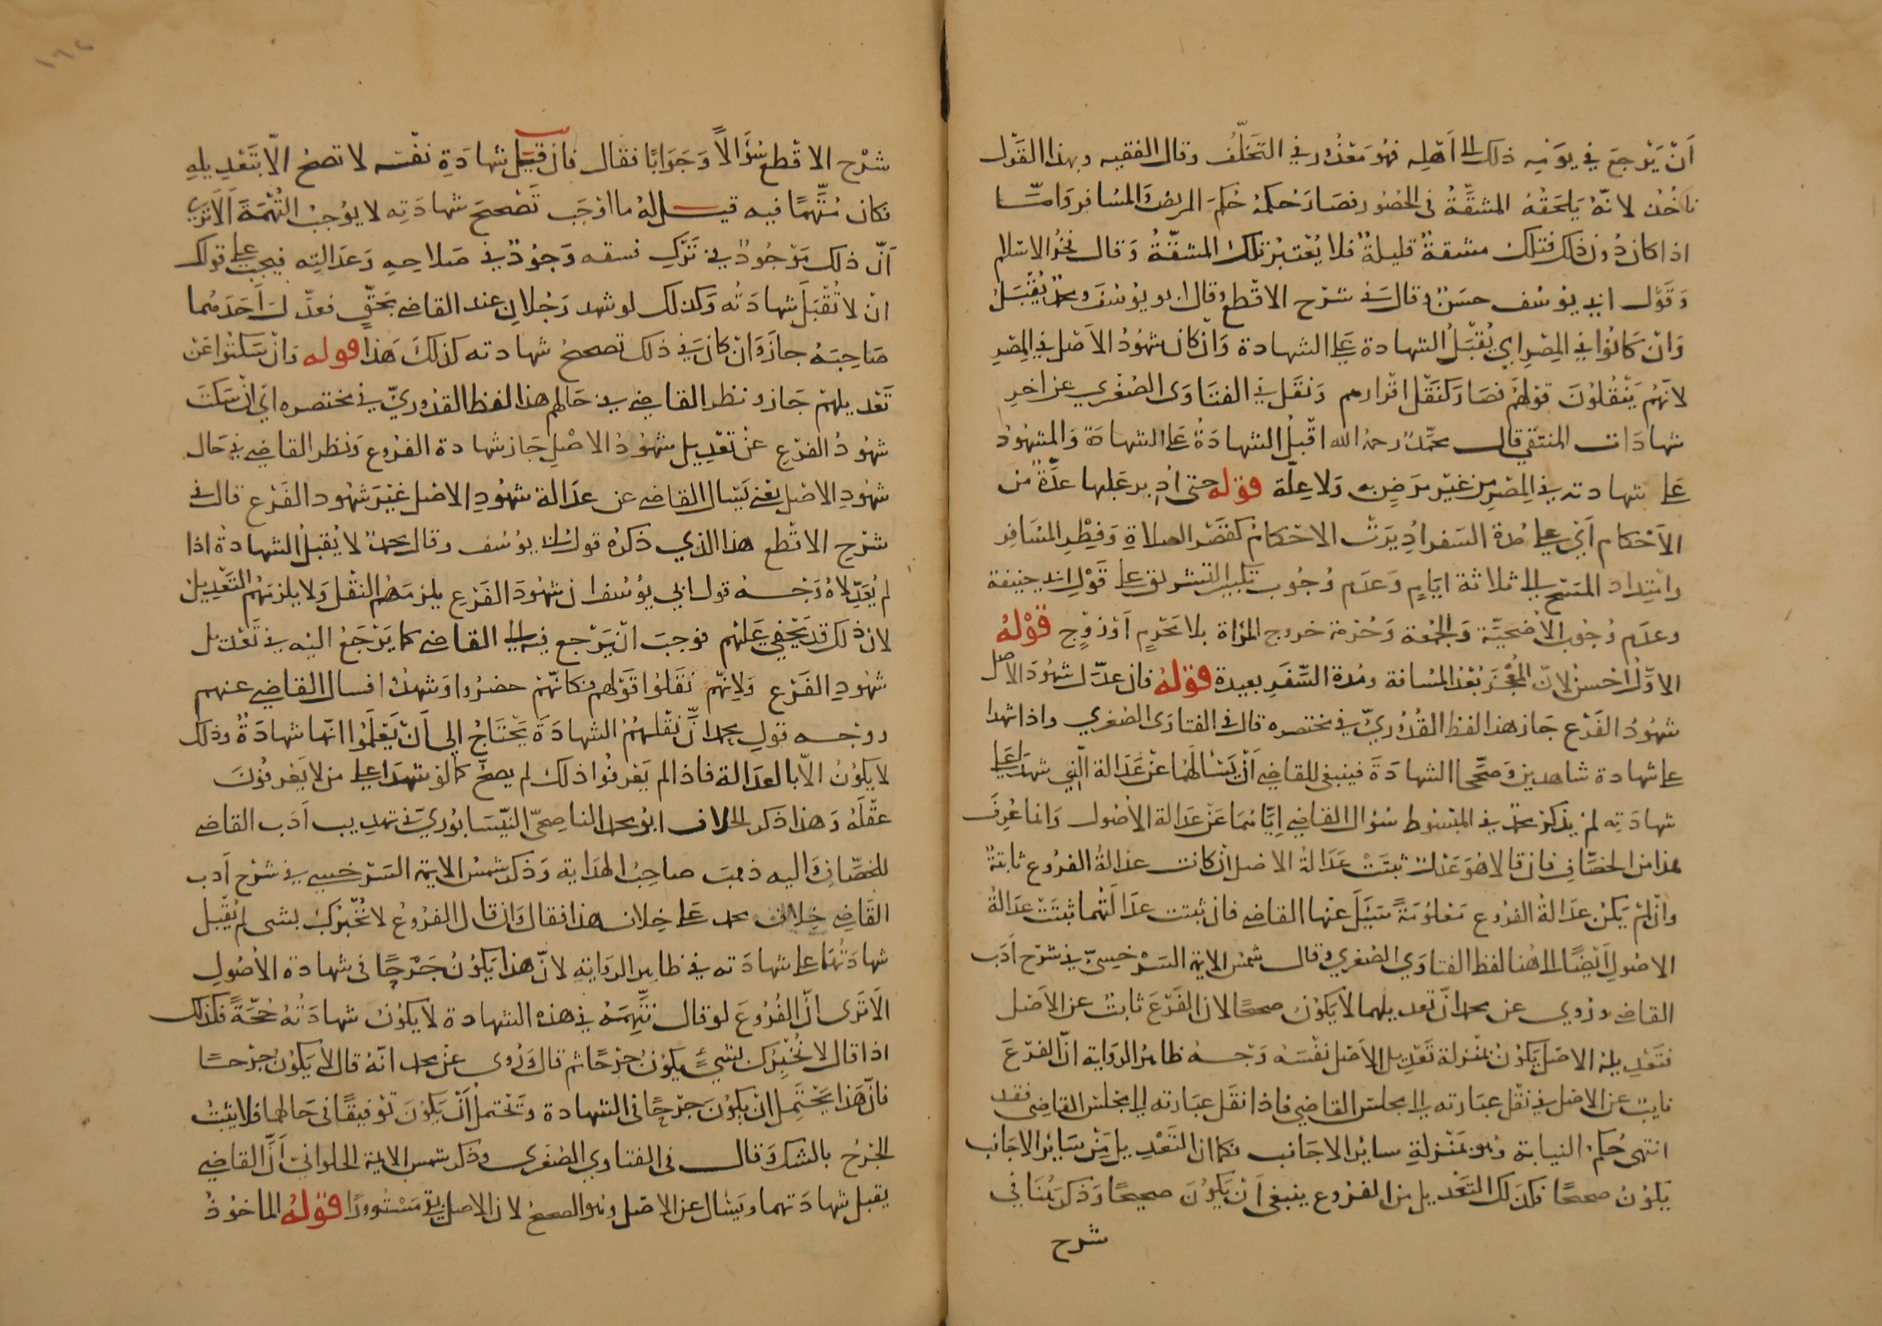 أن يرجع في يومه ذلك إلى أهله فهو معذور في التخلف وقال الفقيه وبهذا القول
ناخذ لانه يلحقه المشقة في الحضور فصار حكمه حكم المريض والمسافر وامّا
اذا كان دون ذلك فتلك مشقة قليلة فلا يعتبر تلك المشقة وقال فخر الاسلام
وقول ابي يوسف حسن وقال في شرح الاقطع وقال ابو يوسف ومحمد يُقبَل
وان كانوا في المصر اي يُقبَلُ الشهادة على الشهادة وان كان شهود الأصل في المصر
لانهم ينقلون قولهم فصار كنقل اقرارهم ونقل في الفتاوى الصغري عن اخر
شهادات المنتقي قال محمد رحمه الله اقبل الشهادة على الشهادة والمشهود
على شهادته في المصر من غير مرض به ولا علة قوله حتى ادير عليها عدة من
الأحكام أي على مدة السفر اديرت الاحكام كقصر الصلاة وفطر المسافر
وامتداد المسح الى ثلاثة ايام وعدم وجوب تكبير التشريق على قول ابي حنيفة
وعدم وجوب الأضحية والجمعة وحرمة خروج المرأة بلا محرم أو زوج قوله
الاول احسن لانّ المعجز بعد المسافة ومدة السفر بعيدة قوله فان عدّل شهود الأصل
شهود الفرع جاز هذا لفظ القدوريّ في مختصره قال في الفتاوى الصغري واذا شهدا
على شهادة شاهدين وصححا الشهادة فينبغي للقاضي أن يسألهما عن عدالة الذي شهدا على
شهادته لم يذكر محمد في المبسوط سؤال القاضي إياهما عن عدالة الأصول وانما عرف
هذا من الخصاف فان قالا هو عدل ثبتت عدالة الاصل ان كانت عدالة الفروع ثابتة
وان لم يكن عدالة الفروع معلومة سيسَل عنها القاضي فان ثبتت عدالتهما ثبتت عدالة
الاصول أيضا الى هنا لفظ الفتاوي الصغري وقال شمس الايمة السرخسيّ في شرح أدب
القاضي وروي عن محمد انّ تعديلهما لا يكون صحيحا لان الفرع ثابت عن الأصل
فتعديله الاصل يكون بمنزلة تعديل الأصل نفسه وجه ظاهر الرواية انّ الفرع
نايب عن الاصل في نقل عبارته الى مجلس القاضي فاذا نقل عبارته الى مجلس القاضي فقد
انتهى حكم النيابة وهو بمنزلة ساير الاجانب فكما ان التعديل من ساير الاجانب
يكون صحيحا فكذلك التعديل من الفروع ينبغي أن يكون صحيحا وذكر هنا في
شرح
شرح الاقطع سُؤالاً وجوابا فقال فان قيل شهادة نفسه لا تصح الا بتعديله
فكان متّهمًا فيه قيل له ما اوجب تصحيح شهادته لا يوجب التهمة ألا ترى
أنّ ذلك موجود في ترك فسقه وجود في صلاحه وعدالته فيجب على قولك
ان لا تقبل شهادته وكذلك لو شهد رجلان عند القاضي بحقّ فعدّل احدهما
صاحبه جاز وان كان في ذلك تصحيح شهادته كذلك هذا قوله وان سكتوا عن
تعديلهم جاز ونظر القاضي في حالهم هذا لفظ القدوريّ في مختصره اي ان سكت
شهود الفرع عن تعديل شهود الاصل جاز شهادة الفروع ونظر القاضي في حال
شهود الاصل يعني يسال القاضي عن عدالة شهود الاصل غير شهود الفرع قال في
شرح الاقطع هذا الذي ذكره قول ابي يوسف وقال محمد لا يقبل الشهادة اذا
لم يعدلاه وجه قول ابي يوسف ان شهود الفرع يلزمهم النقل ولا يلزمهم التعديل
لان ذلك قد يخفي عليهم فوجب ان يرجع فيه الى القاضي كما يرجع اليه في تعديل
شهود الفرع ولانهم نقلوا قولهم فكانهم حضروا وشهدوا فسال القاضي عنهم
ووجه قول محمد انّ نقلهم الشهادة يحتاج الى أن يعلموا انها شهادة وذلك
لا يكون الا بالعدالة فاذا لم يعرفوا ذلك لم يصحّ كما لو شهدا على من لا يعرفون
عقله وهذا ذكر الخلاف ابو محمد الناصحيّ النيسابوريّ في تهذيب أدب القاضي
للخصّاف واليه ذهب صاحب الهداية وذكر شمس الايمة السرخسي في شرح أدب
القاضي خلاف محمد على خلاف هذا فقال وان قال الفروع لا نخبرك بشي لم يُقبل
شهادتهما على شهادته في ظاهر الرواية لانّ هذا يكون جرحًا في شهادة الأصول
الا ترى انّ الفروع لو قال نتهمه في هذه الشهادة لا يكون شهادته حجّةً فكذلك
اذا قال لا نخبرك بشيءٍ يكون جرحًا ثم قال وروى عن محمد انه قال لا يكون جرحًا
فانّ هذا يحتمل ان يكون جرحًا في الشهادة ويحتمل أن يكون توفيقًا في حالهما فلا يثبت
الجرح بالشك وقال في الفتاوي الصغرى وذكر شمس الايمة الحلوانيّ أنّ القاضي
يقبل شهادتهما ويسال عن الاصل وهو الصحيح لان الاصل بقي مستورًا قوله الماخوذ